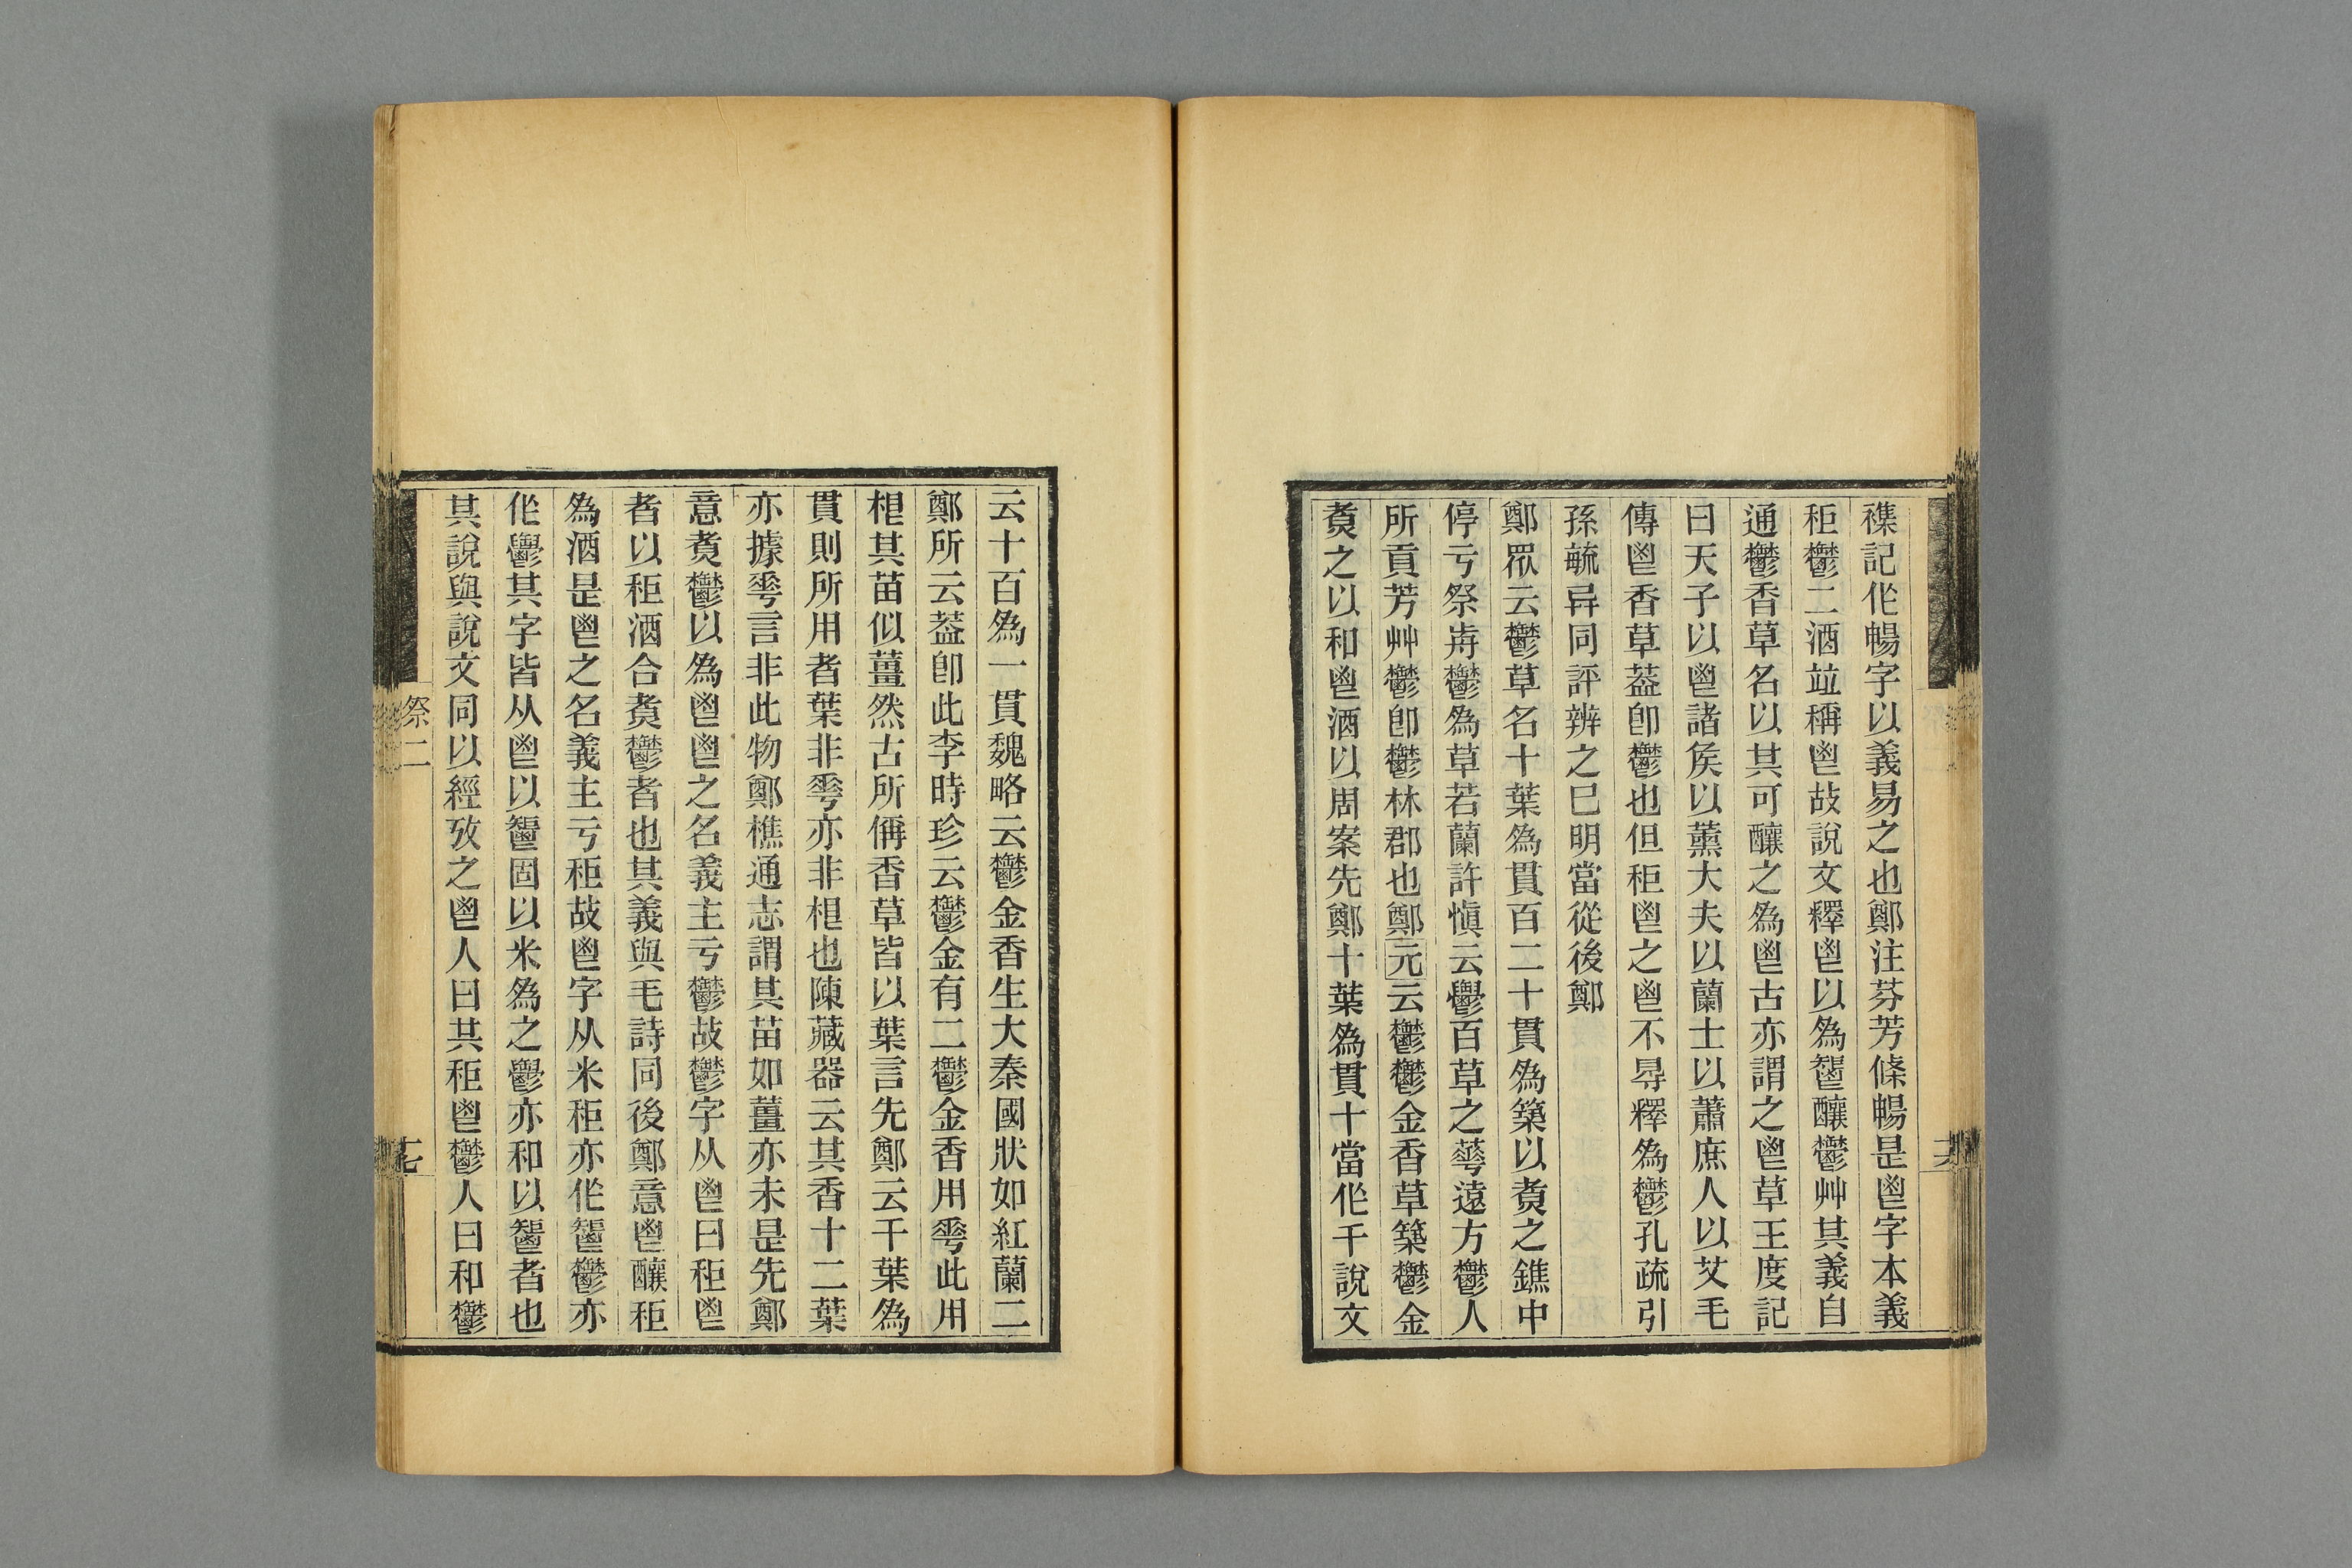 襍記作暢字以義易之也鄭注芬芳條暢是鬯字本義
秬鬱二酒竝稱鬯故說文釋鬯以為䰜釀鬱艸其義自
通鬱香草名以其可釀之為鬯古亦謂之鬯草王度記
曰天子以鬯諸矦以薰大夫以蘭士以蕭庶人以艾毛
傳鬯香草葢卽鬱也但秬鬯之鬯不㝵釋為鬱孔疏引
孫毓异同評辨之已明當從後鄭
鄭眾云鬱草名十葉為貫百二十貫為築以煑之鐎中
停亏祭歬鬱為草若蘭許愼云鬱百草之蕚遠方鬱人
所貢芳艸鬱卽鬱林郡也鄭元云鬱鬱金香草築鬱金
煑之以和鬯酒以周案先鄭十葉為貫十當作千說文
云十百為一貫魏略云鬱金香生大秦國狀如紅蘭二
鄭所云葢卽此李時珍云鬱金有二鬱金香用雩此用
根其苗似薑然古所偁香草皆以葉言先鄭云千葉為
貫則所用者葉非雩亦非根也陳藏器云其香十二葉
亦據雩言非此物鄭樵通志謂其苗如薑亦未是先鄭
意煑鬱以為鬯鬯之名義主亏鬱故鬱字从鬯曰秬鬯
者以秬酒合煑鬱者也其義與毛詩同後鄭意鬯釀秬
為酒是鬯之名義主亏秬故鬯字从米秬亦作䰜鬱亦
作鬱其字皆从鬯以䰜固以米為之鬱亦和以䰜者也
其說與說文同以經攷之鬯人曰共秬鬯鬱人曰和鬱
祭二
十七